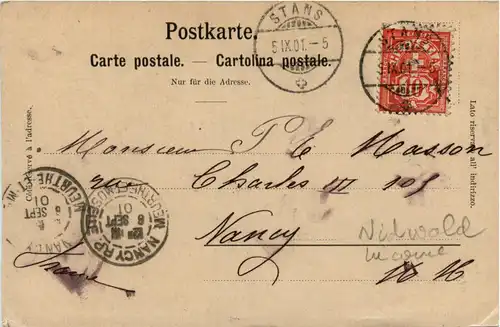 Postkarte.
Carte postale. — Cartolina postale.
Nur für die Adresse.
Côté réservé à l'adresse.
Lato riservato all' indirizzo.
STANS
5.IX.01.–5
STANS
5.IX.01.–5
Monsieur P E Masson
rue Charles III 103
Nancy
M M
France
Nidwald
NANCY R.P.
MEURTHE-ET-MOSELLE
6
SEPT
01
NANCY
MEURTHE-ET-M
6
SEPT
01